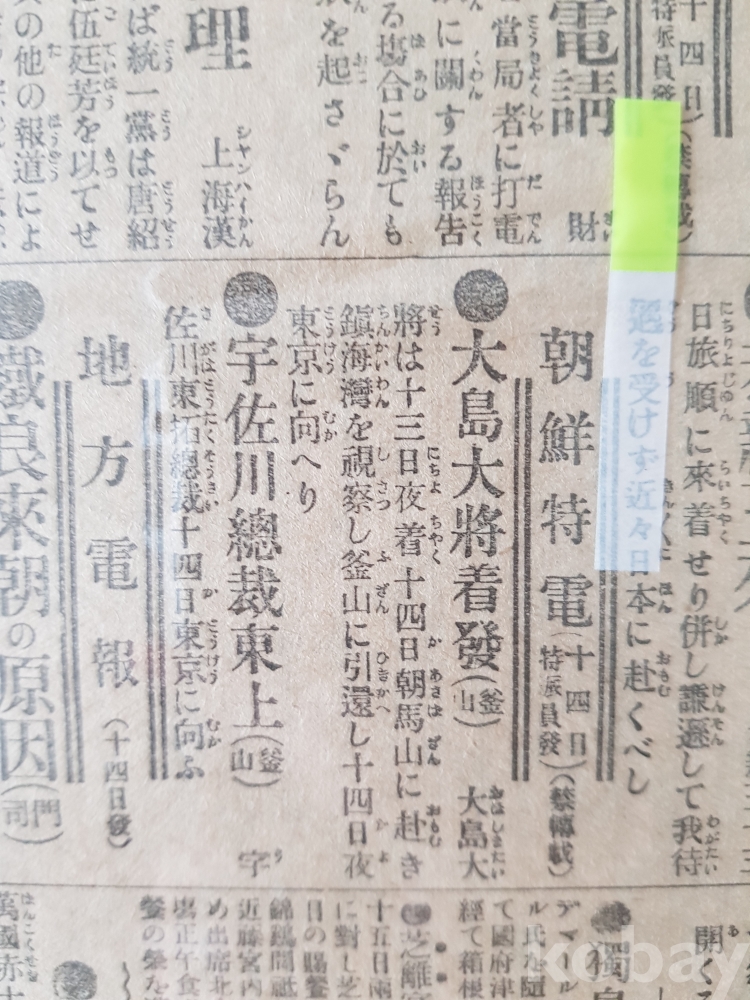 十四日
特派員發
(禁轉載)
電請
財
當局者に打電
に關する報告
る塲合に於ても
を起さゞらん
理
上海漢
ば統一黨は唐紹
伍廷芳を以てせ
の他の報道によ
日旅順に來着せり併し謙遜して我待
遇を受けず近々く日本に赴くべし
朝鮮特電
(十四日
特派員發)
(禁轉載)
●大島大將着發(釜山)
大島大
將は十三日夜着十四日朝馬山に赴き
鎭海灣を視察し釜山に引還し十四日夜
東京に向へり
●宇佐川總裁東上(釜山)
宇
佐川東拓總裁十四日東京に向ふ
地方電報
(十四日發)
●鐵良來朝の原因(門司)
開く
●獨
デマール
ル氏を隨
て國府津
經て箱根
●芝離宮
十五日兩
に對し芝
日の賜餐
錦鷄間祗
近藤宮內
め出席北
塲正午食
餐の榮を
萬國赤十
kobay